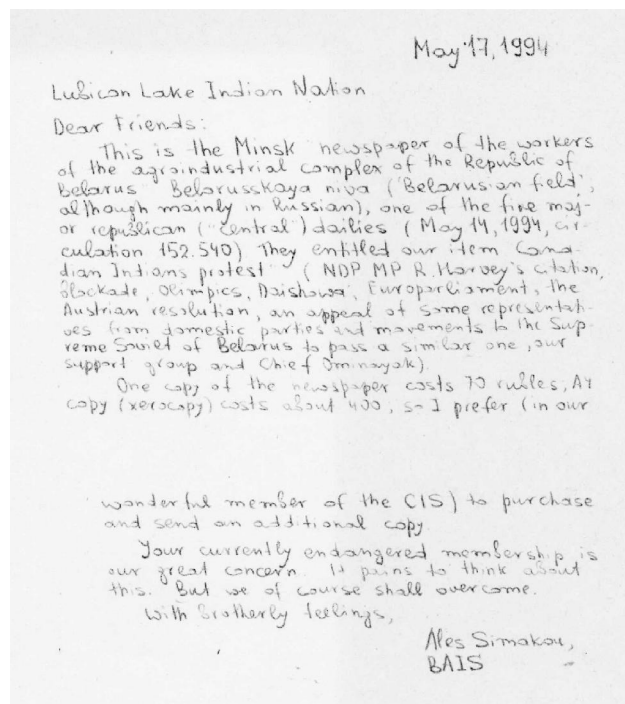 May 17, 1994
Lubicon Lake Indian Nation
Dear Friends:
This is the Minsk newspaper of the workers
of the agroindustrial complex of the Republic of
Belarus "Belorusskaya niva" ("Belarusian field",
although mainly in Russian), one of the five maj-
or republican ("central") dailies (May 14, 1994, cir-
culation 152.540) They entitled our item "Cana-
dian Indians protest" (NDP MP R. Harvey's citation,
blockade, Olimpics, Daishowa, Europarliament, the
Austrian resolution, an appeal of some representati-
ves from domestic parties and movements to the Sup-
reme Soviet of Belarus to pass a similar one, our
support group and Chief Ominayak).
One copy of the newspaper costs 70 rubles; A4
copy (xerocopy) costs about 400, so I prefer (in our
wonderful member of the CIS) to purchase
and send an additional copy.
Your currently endangered membership is
our great concern. It pains to think about
this. But we of course shall overcome.
With brotherly feelings,
Ales Simakou,
BAIS